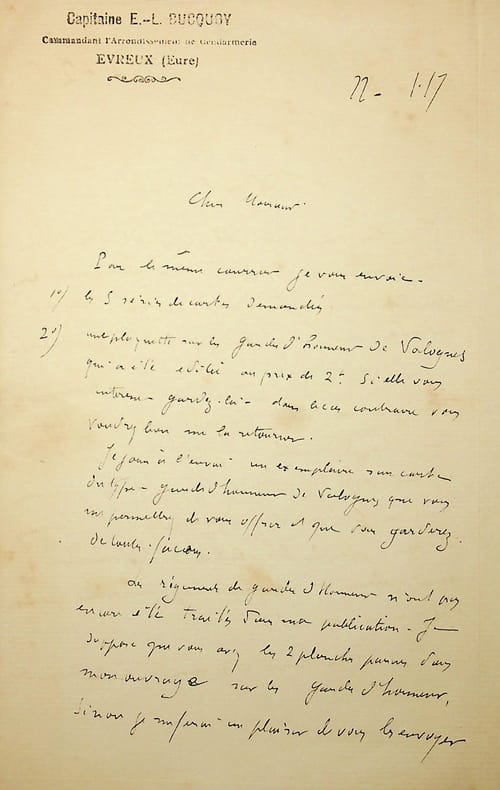 Capitaine E.-L. BUCQUOY
Commandant l'Arrondissement de Gendarmerie
EVREUX (Eure)
22 - 1-17
Cher Monsieur
Par le même courrier je vous envoie -
1º) les 5 séries de cartes demandées
2º) une plaquette sur les gardes d'honneur de Valognes
qui a été éditée au prix de 2f. Si elle vous
intéresse gardez-la - dans le cas contraire vous
voudrez bien me la retourner.
Je joins à l'envoi un exemplaire sur carte
du type - gardes d'honneur de Valognes que vous
me permettrez de vous offrir et que vous garderez
de toutes façons.
Les régiments de gardes d'honneur n'ont pas
encore été traités dans ma publication - Je
suppose que vous avez les 2 planches parues dans
mon ouvrage sur les gardes d'honneur,
sinon je me ferai un plaisir de vous les envoyer